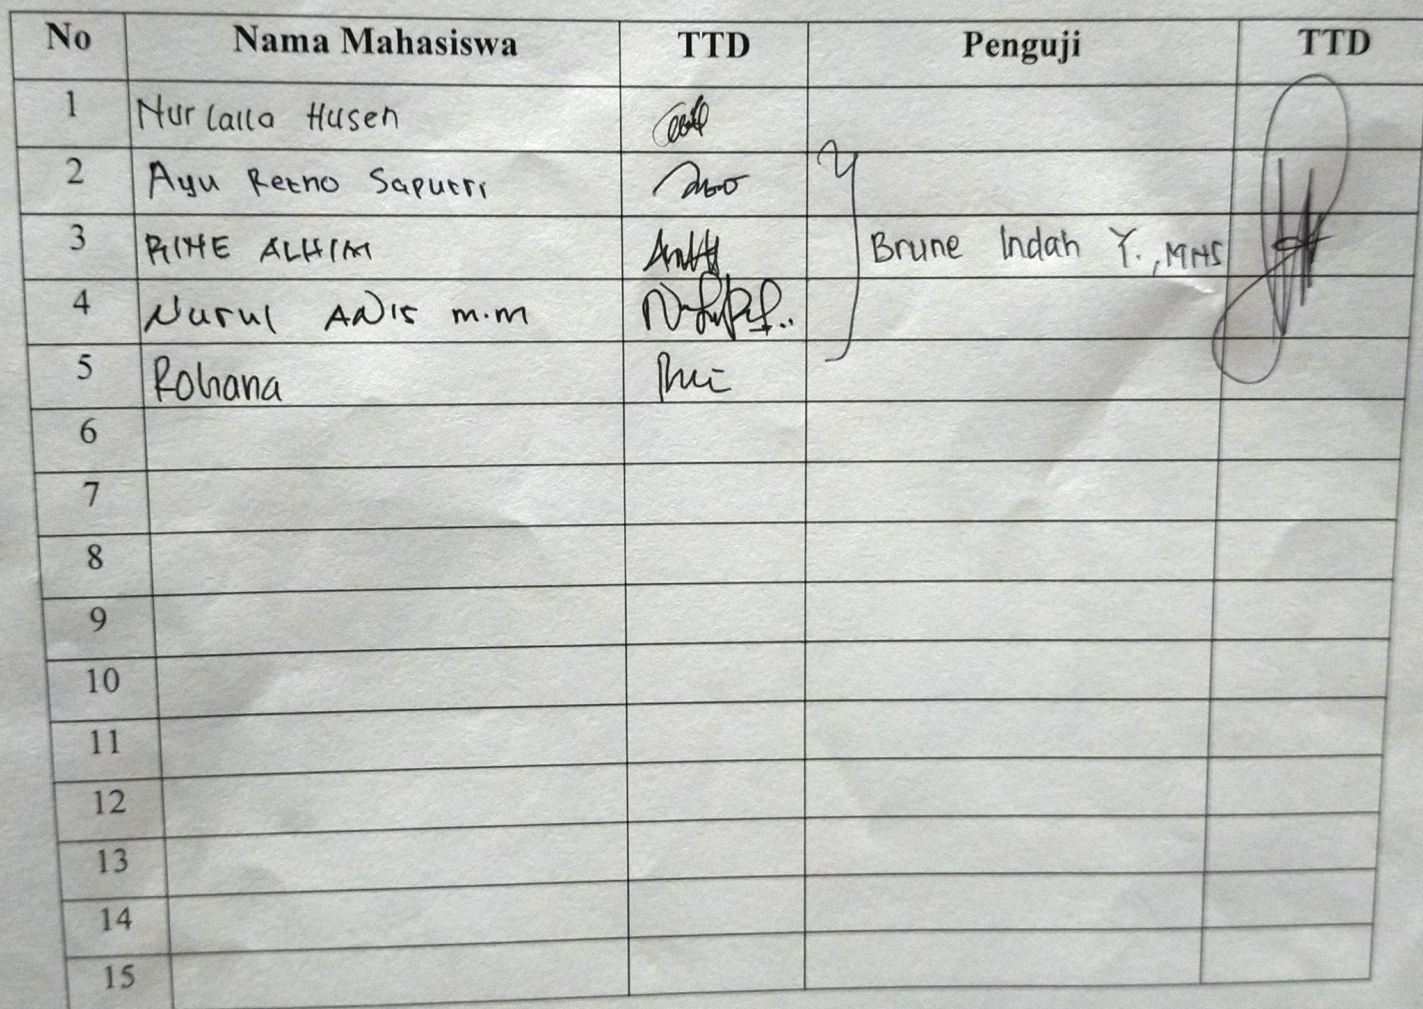 No Nama Mahasiswa TTD Penguji TTD
1 Nur Laila Husen
2 Ayu Retno Saputri
3 ALHIM Brune Indah Y., MNS
4 Nurul ANIS M.M
5 Rohana
6
7
8
9
10
11
12
13
14
15